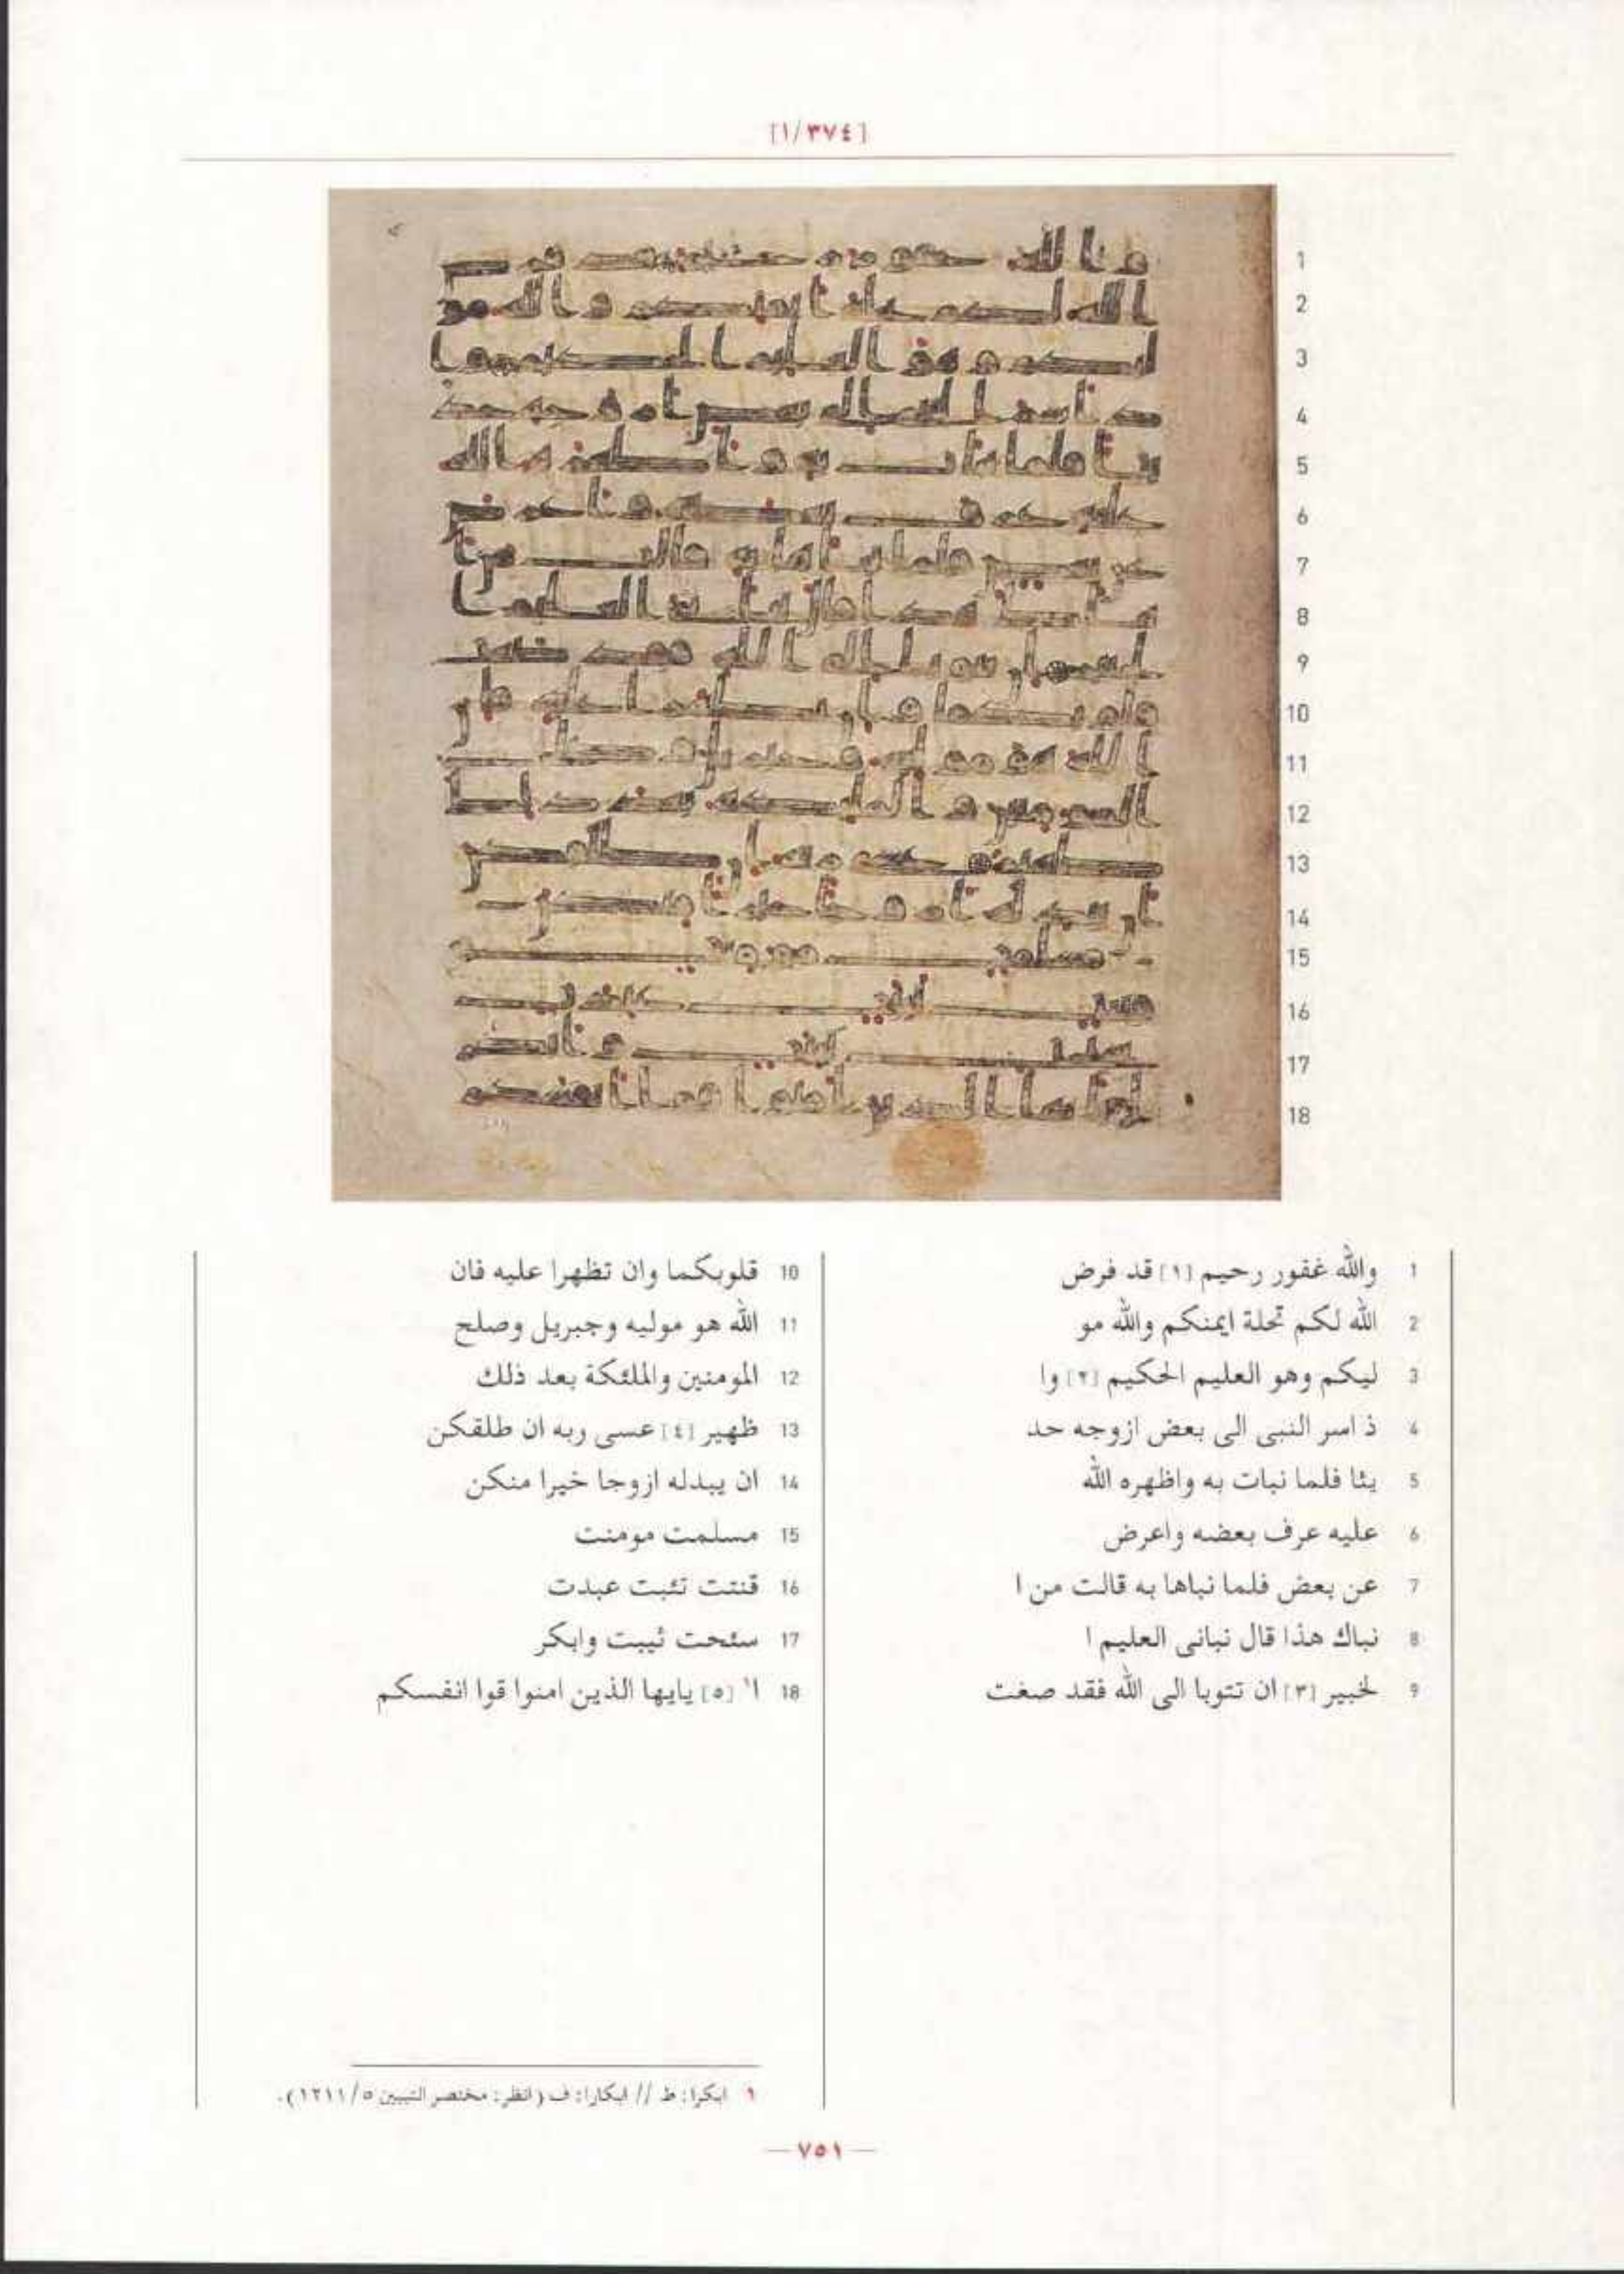 [١/٣٧٤]
1 والله غفور رحيم [١] قد فرض
2 الله لكم تحلة ايمنكم والله مو
3 ليكم وهو العليم الحكيم [٢] وا
4 ذ اسر النبى الى بعض ازوجه حد
5 يثا فلما نبات به واظهره الله
6 عليه عرف بعضه واعرض
7 عن بعض فلما نباها به قالت من ا
8 نباك هذا قال نبانى العليم ا
9 لخبير [٣] ان تتوبا الى الله فقد صغت
10 قلوبكما وان تظهرا عليه فان
11 الله هو موليه وجبريل وصلح
12 المومنين والملئكة بعد ذلك
13 ظهير [٤] عسى ربه ان طلقكن
14 ان يبدله ازوجا خيرا منكن
15 مسلمت مومنت
16 قنتت تئبت عبدت
17 سئحت ثيبت وابكر
18 ا١ [٥] يايها الذين امنوا قوا انفسكم
١ ابكرا: ط // ابكارا: ف (انظر: مختصر التبيين ١٢١١/٥).
— ٧٥١ —